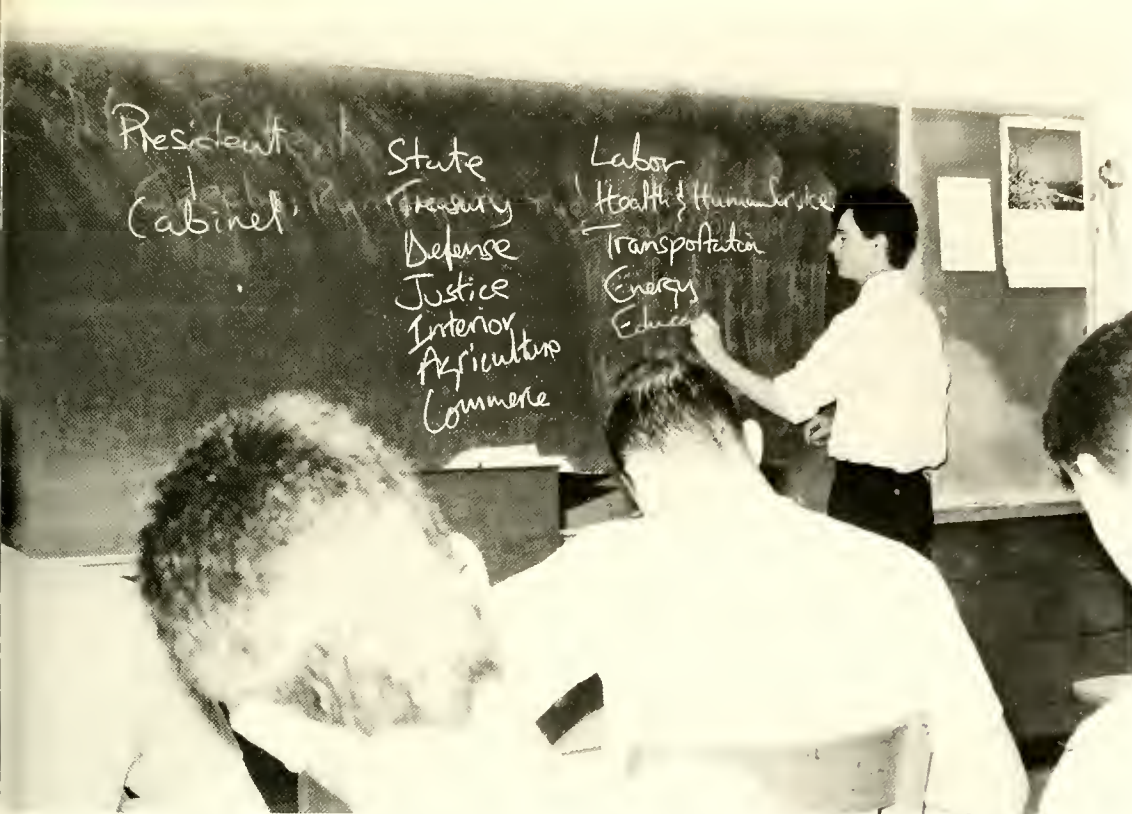 President
Cabinet
State
Treasury
Defense
Justice
Interior
Agriculture
Commerce
Labor
Health & Human
Transportation
Energy
Educa